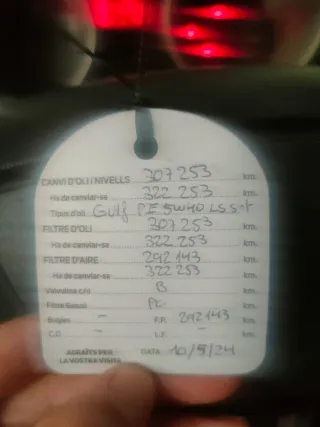 CANVI D'OLI I NIVELLS 307 253 km.
Ha de canviar-se 322 253 km.
Tipus d'oli Gulf 5W40
FILTRE D'OLI 307 253 km.
Ha de canviar-se 322 253 km.
FILTRE D'AIRE 292 143 km.
Ha de canviar-se 322 253 km.
Valvolina c/v B km.
Filtre Gasoil PC km.
Bugies — F.P. 292 143 km.
C.D. — — km.
AGRAÏTS PER DATA 10/5/24
LA VOSTRA VISITA